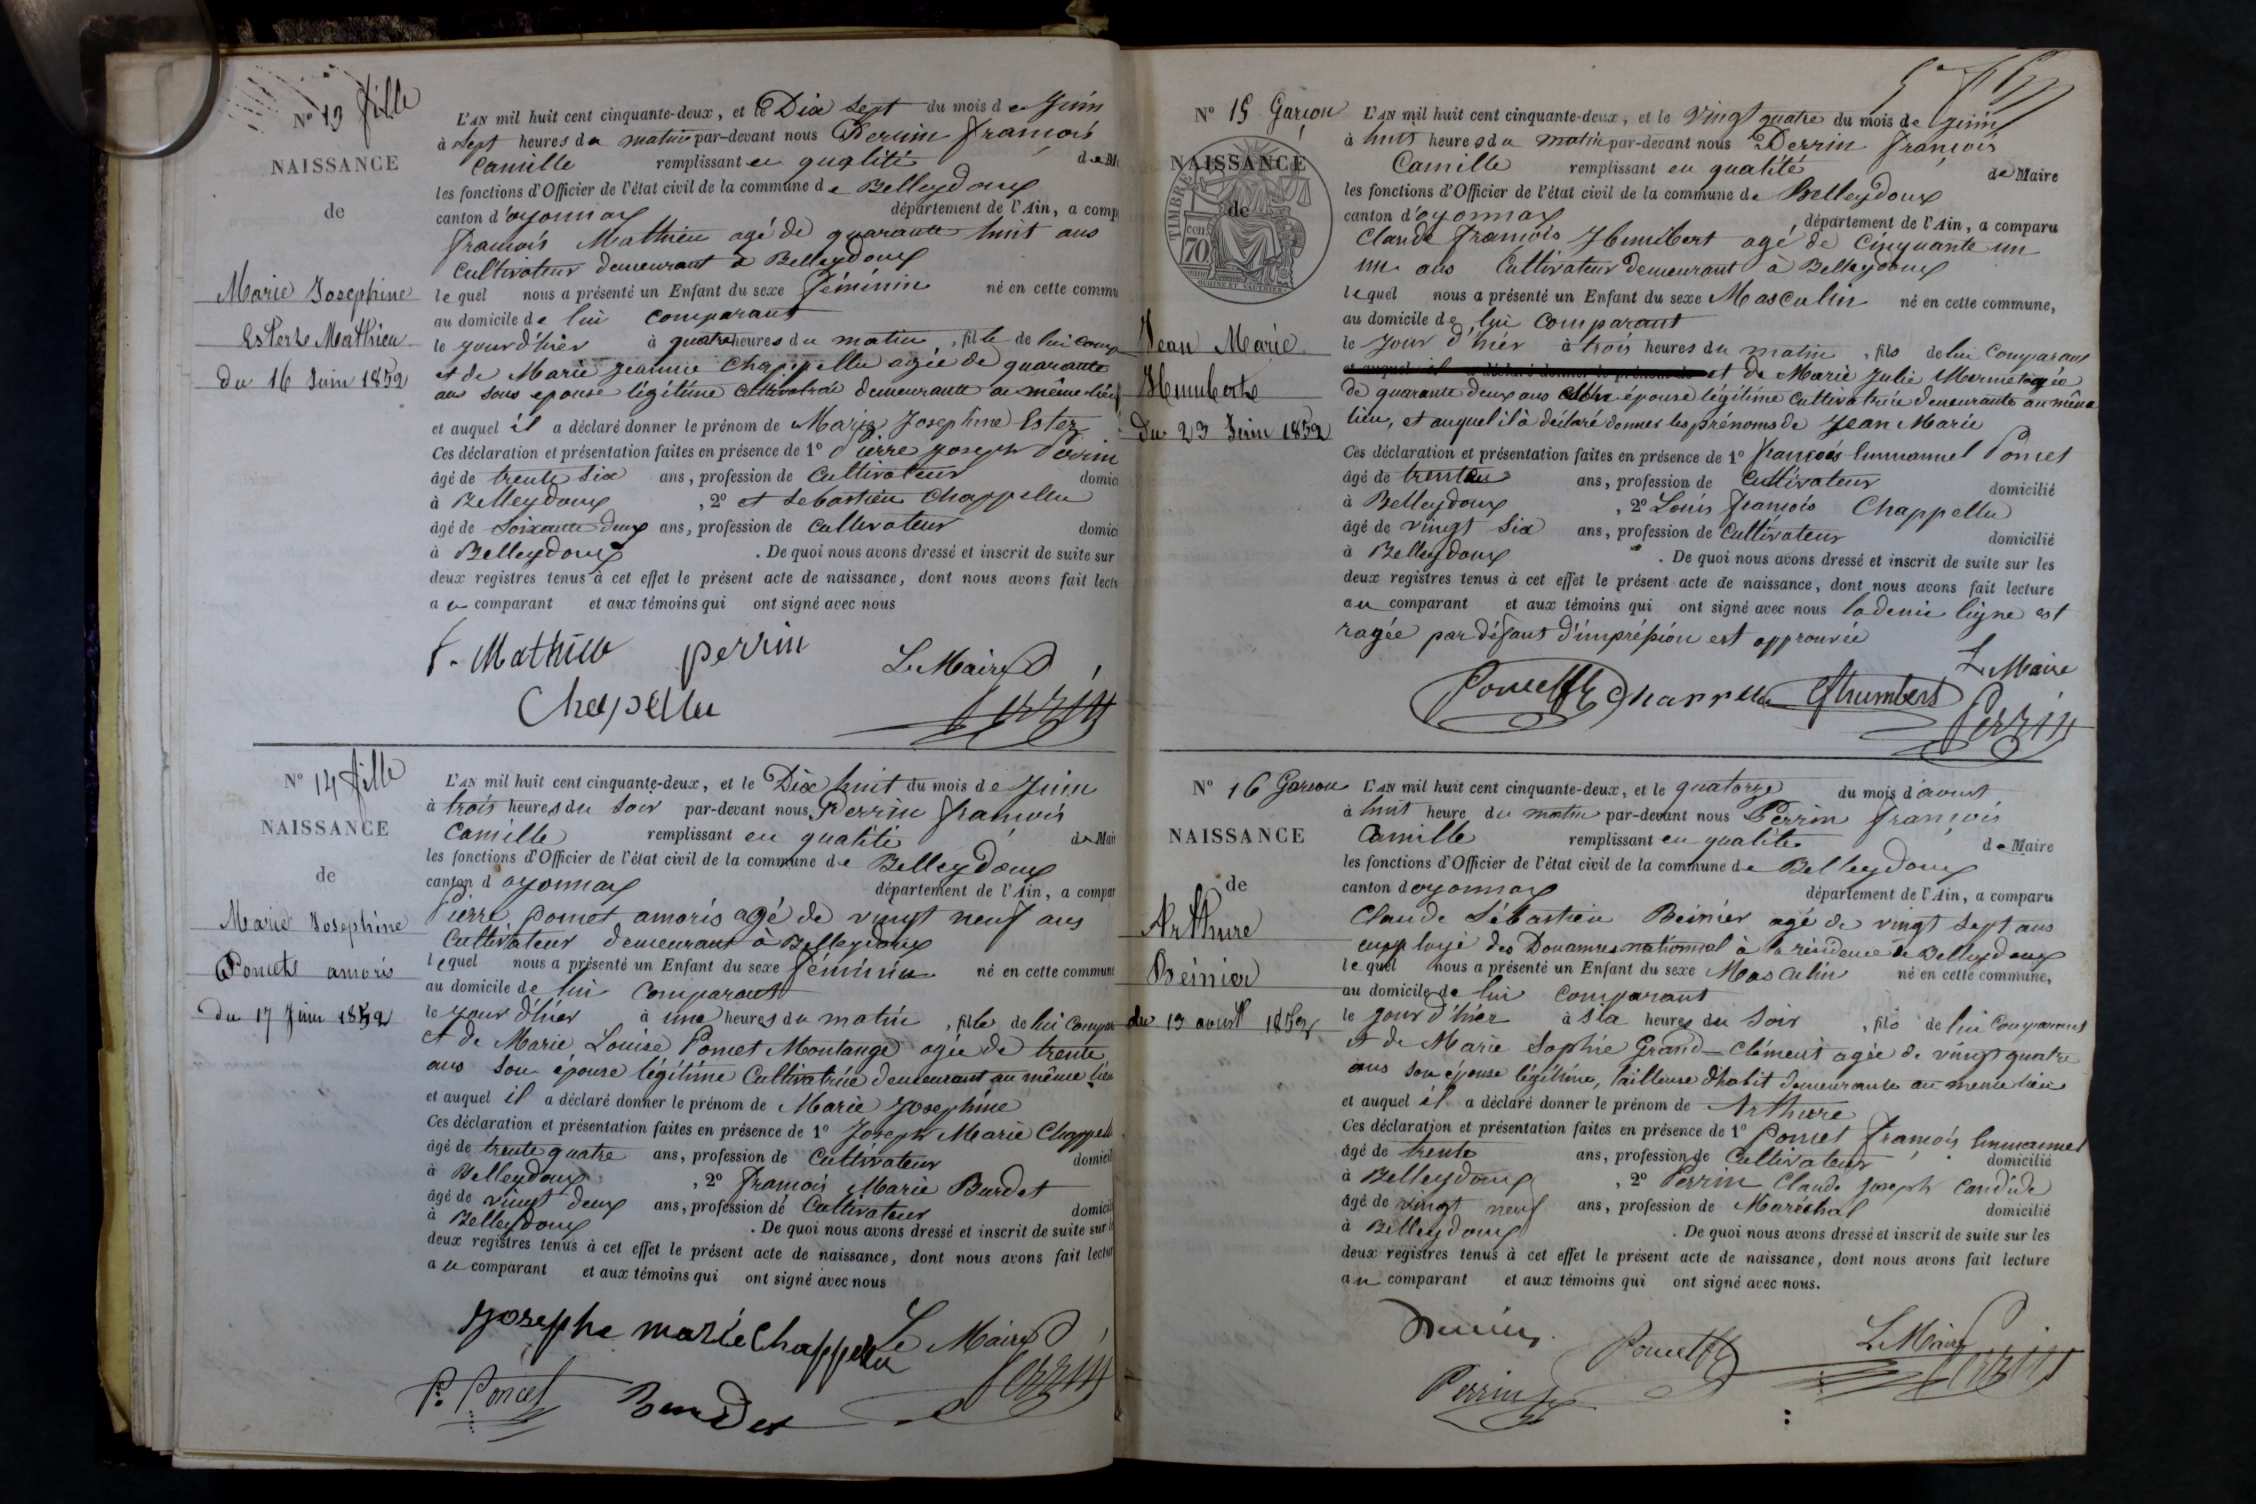 N° 13 fille
NAISSANCE
de
Marie Josephine
Esther Mathieu
du 16 Juin 1852
L'AN mil huit cent cinquante-deux, et le Dix Sept du mois de Juin
à Sept heures du matin par-devant nous Perrin françois
Camille remplissant en qualité de M
les fonctions d'Officier de l'état civil de la commune de Belleydoux
canton d'oyonnax département de l'Ain, a comp
françois Mathieu agé de quarante huit ans
Cultivateur demeurant à Belleydoux
lequel nous a présenté un Enfant du sexe féminin né en cette commu
au domicile de lui comparant
le jour d'hier à quatre heures du matin, fille de lui comp
et de Marie jeannie Chappellu agée de quarante
ans sous epouse légitime cultivatrice demeurante au même lieu
et auquel il a déclaré donner le prénom de Marie Josephine Ester
Ces déclaration et présentation faites en présence de 1° Pierre joseph Perrin
âgé de trente Six ans, profession de Cultivateur domic
à Belleydoux, 2° et Sebastien Chappellu
âgé de Soixante deux ans, profession de Cultivateur domic
à Belleydoux. De quoi nous avons dressé et inscrit de suite sur
deux registres tenus à cet effet le présent acte de naissance, dont nous avons fait lectu
au comparant et aux témoins qui ont signé avec nous
f. Mathieu perrin Le Maire
Chapellu Perrin
N° 14 fille
NAISSANCE
de
Marie Josephine
Poncet amoris
du 17 Juin 1852
L'AN mil huit cent cinquante-deux, et le Dix huit du mois de Juin
à trois heures du Soir par-devant nous Perrin françois
Camille remplissant en qualité de Mair
les fonctions d'Officier de l'état civil de la commune de Belleydoux
canton d oyonnax département de l'Ain, a compar
Pierre Poncet amoris agé de vingt neuf ans
Cultivateur demeurant à Belleydoux
lequel nous a présenté un Enfant du sexe féminin né en cette commune
au domicile de lui comparant
le jour d'hier à une heures du matin, fille de lui compar
et de Marie Louise Poncet Montange agée de trente
ans son épouse légitime Cultivatrice demeurant au même lieu
et auquel il a déclaré donner le prénom de Marie Josephine
Ces déclaration et présentation faites en présence de 1° Joseph Marie Chappell
âgé de trente quatre ans, profession de Cultivateur domicil
à Belleydoux, 2° françois Marie Burdet
âgé de vingt deux ans, profession de Cultivateur domicil
à Belleydoux. De quoi nous avons dressé et inscrit de suite sur l
deux registres tenus à cet effet le présent acte de naissance, dont nous avons fait lectur
au comparant et aux témoins qui ont signé avec nous
Josephe marie Chappellu Le Maire
P. Poncet Burdet Perrin
N° 15 Garçon
NAISSANCE
de
TIMBRE
70 cen
Jean Marie
Humberts
Du 23 Juin 1852
L'AN mil huit cent cinquante-deux, et le Vingt quatre du mois de Juin
à huit heures du matin par-devant nous Perrin françois
Camille remplissant en qualité de Maire
les fonctions d'Officier de l'état civil de la commune de Belleydoux
canton d'oyonnax, département de l'Ain, a comparu
Claude françois Humbert agé de Cinquante un
un ans Cultivateur demeurant à Belleydoux
lequel nous a présenté un Enfant du sexe Masculin né en cette commune,
au domicile de lui Comparant
le Jour d'hier à trois heures du matin, fils de lui Comparant
et auquel il a déclaré donner le prénom de et de Marie Julie Mermet agée
de quarante deux ans épouse légitime Cultivatrice demeurante au même
lieu, et auquel il à déclaré donner les prénoms de Jean Marie
Ces déclaration et présentation faites en présence de 1° françois Emmanuel Poncet
âgé de trente ans, profession de Cultivateur domicilié
à Belleydoux, 2° Louis françois Chappellu
âgé de vingt Six ans, profession de Cultivateur domicilié
à Belleydoux. De quoi nous avons dressé et inscrit de suite sur les
deux registres tenus à cet effet le présent acte de naissance, dont nous avons fait lecture
au comparant et aux témoins qui ont signé avec nous la demie ligne est
rayée par défaut d'impréssion est approuvée
Le Maire
Poncet Chappellu Humbert Perrin
N° 16 Garcon
NAISSANCE
de
Arthure
Beinier
du 13 avout 1852
L'AN mil huit cent cinquante-deux, et le quatorze du mois d'avout
à huit heure du matin par-devant nous Perrin françois
Camille remplissant en qualité de Maire
les fonctions d'Officier de l'état civil de la commune de Belleydoux
canton d oyonnax département de l'Ain, a comparu
Claude Sébastien Beinier agé de vingt Sept ans
employé des Douannes national à la résidence de Belleydoux
lequel nous a présenté un Enfant du sexe Masculin né en cette commune,
au domicile de lui comparant
le jour d'hier à six heures du Soir, fils de lui Comparant
et de Marie Sophie Grand-Clément agée de vingt quatre
ans son épouse légitime, tailleuse d'habit demeurante au meme lieu
et auquel il a déclaré donner le prénom de Arthure
Ces déclaration et présentation faites en présence de 1° Poncet françois Emmanuel
âgé de trente ans, profession de Cultivateur domicilié
à Belleydoux, 2° Perrin Claude Joseph Candide
âgé de vingt neuf ans, profession de Maréchal domicilié
à Belleydoux. De quoi nous avons dressé et inscrit de suite sur les
deux registres tenus à cet effet le présent acte de naissance, dont nous avons fait lecture
au comparant et aux témoins qui ont signé avec nous.
Poncet Le Maire
Perrin Perrin